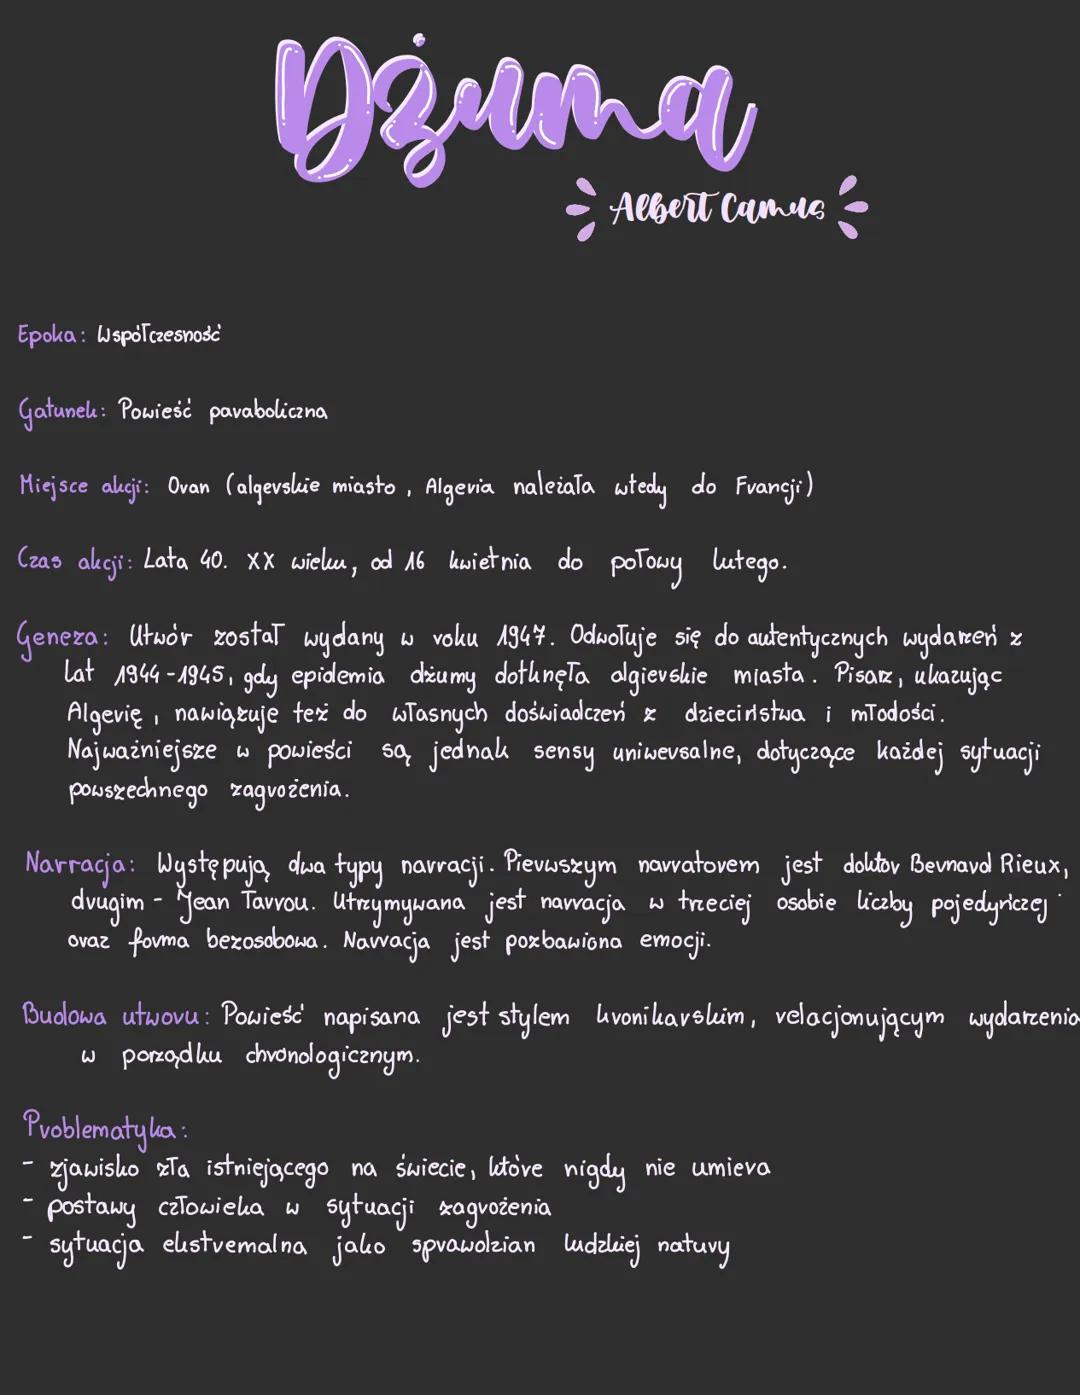 Dżuma
Albert Camus
Epoka: Współczesność
Gatunek: Powieść paraboliczna
Miejsce akcji: Oran (algerskie miasto, Algeria należała wtedy do Francji)
Czas akcji: Lata 40. XX wieku, od 16 kwietnia do połowy lutego.
Geneza: Utwór został wydany w roku 1947. Odwołuje się do autentycznych wydarzeń z
lat 1944-1945, gdy epidemia dżumy dotknęła algierskie miasta. Pisarz, ukazując
Algerię, nawiązuje też do własnych doświadczeń z dzieciństwa i młodości.
Najważniejsze w powieści są jednak sensy uniwersalne, dotyczące każdej sytuacji
powszechnego zagrożenia.
Narracja: Występują dwa typy narracji. Pierwszym narratorem jest doktor Bernard Rieux,
drugim - Jean Tarrou. Utrzymywana jest narracja w trzeciej osobie liczby pojedynczej
oraz forma bezosobowa. Narracja jest pozbawiona emocji.
Budowa utworu: Powieść napisana jest stylem kronikarskim, relacjonującym wydarzenia
w porządku chronologicznym.
Problematyka:
- zjawisko zła istniejącego na świecie, które nigdy nie umiera
- postawy człowieka w sytuacji zagrożenia
- sytuacja ekstremalna jako sprawdzian ludzkiej natury